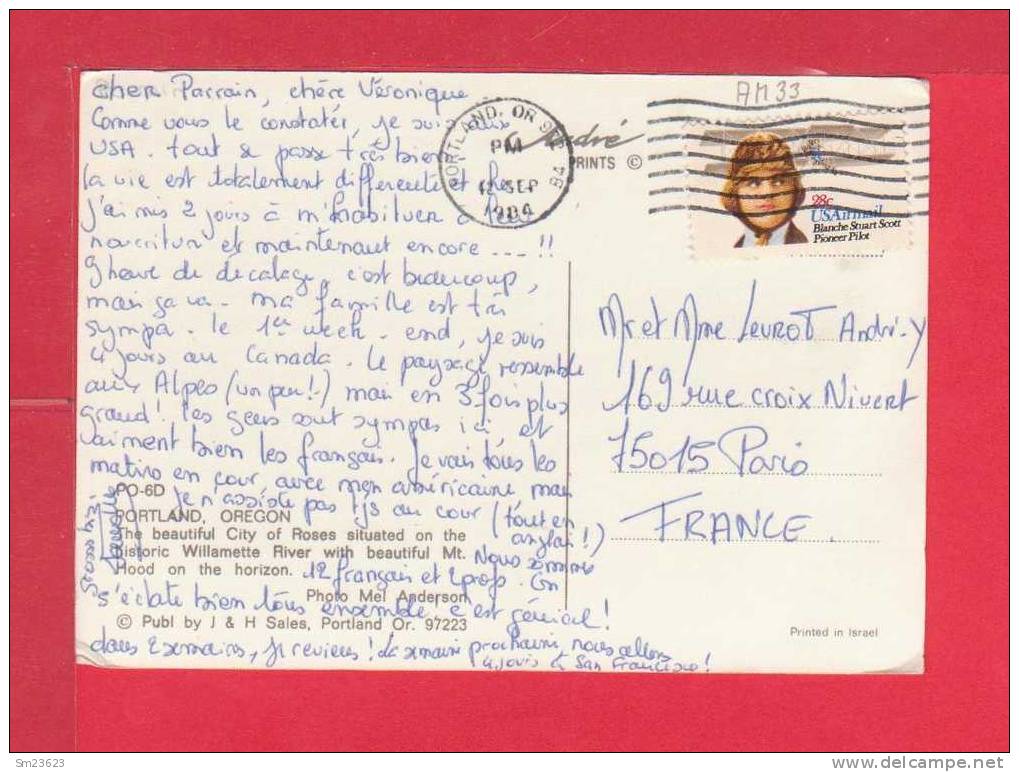 cher Parrain, chère Véronique
Comme vous le constater, je suis aux
USA. tout se passe très bien
la vie est totalement differente et
j'ai mis 2 jours à m'habituer à leur
nourriture et maintenant encore ---- !!
9 heure de décalage, c'est beaucoup,
mais ça va - ma famille est très
sympa. le 1er week-end, je suis
4 jours au Canada. le paysage ressemble
aux Alpes (un peu!) mais en 3 fois plus
grand! les gens sont sympas ici et
aiment bien les français. Je vais tous les
matins en cour avec mon américaine mais
je n'assiste pas tjs au cour (tout en
anglais!)
Nous sommes
12 français et 2 profs. On
s'éclate bien tous ensemble c'est génial!
dans 2 semaines, je reviens! La semaine prochaine, nous allons
4 jours à San Francisco!
Gross biz
PO-6D
PORTLAND, OREGON
The beautiful City of Roses situated on the
historic Willamette River with beautiful Mt.
Hood on the horizon.
Photo Mel Anderson
© Publ by J & H Sales, Portland Or. 97223
André
PRINTS ©
PORTLAND, OR
PM
12 SEP
1984
AM33
28c
USAirmail
Blanche Stuart Scott
Pioneer Pilot
Mr et Mme Leurot André-Y
169 rue croix Nivert
75015 Paris
FRANCE.
Printed in Israel
Sm23623
delcampe.net